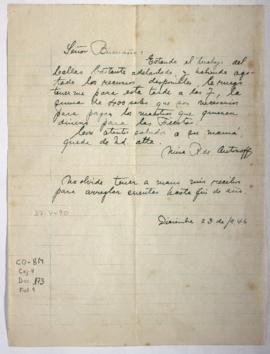 Señor Buenaño:
Estando el trabajo del
ballet bastante adelantado y habiendo ago-
tado los recursos disponibles, le ruego
tenerme para esta tarde a las 7, la
suma de 400 soles que son necesarios
para pagar la maestros que
dinero para las fiestas
atento saludo a su mamá,
quedo de Ud. atta.
Nina R. de Antonoff
No olvide tener a mano mis recibos
para arreglar cuentas hasta fin de año
27.V.90
Diciembre 23 de 1946
CO-BM
Caj. 4
Doc. 173
Fol. 1